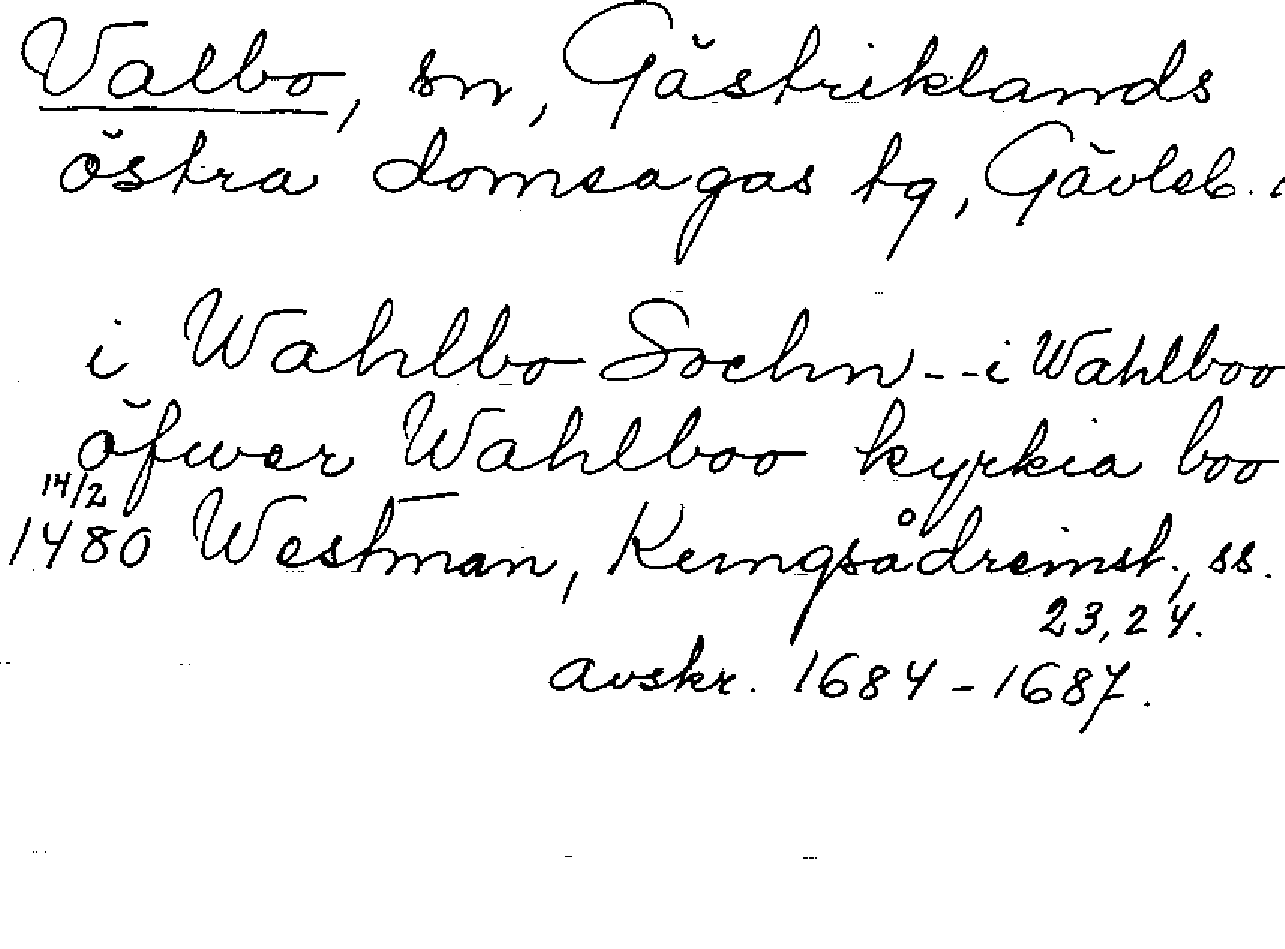 Valbo, sn, Gästriklands
östra domsagas tg, Gävleb.
i Wahlbo Sochn -- i Wahlboo
öfwer Wahlboo kyrkia boo
14/2
1480 Westman, Kungsådreinst., ss.
23, 24.
avskr. 1684-1687.